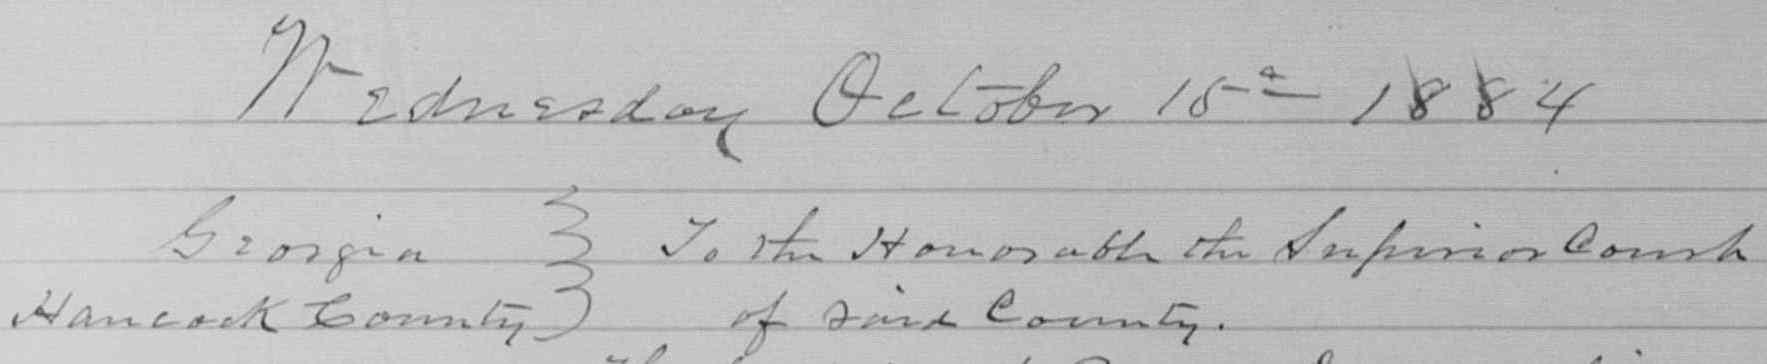 Wednesday October 15th 1884
Georgia } To the Honorable the Superior Court
Hancock County } of said County.